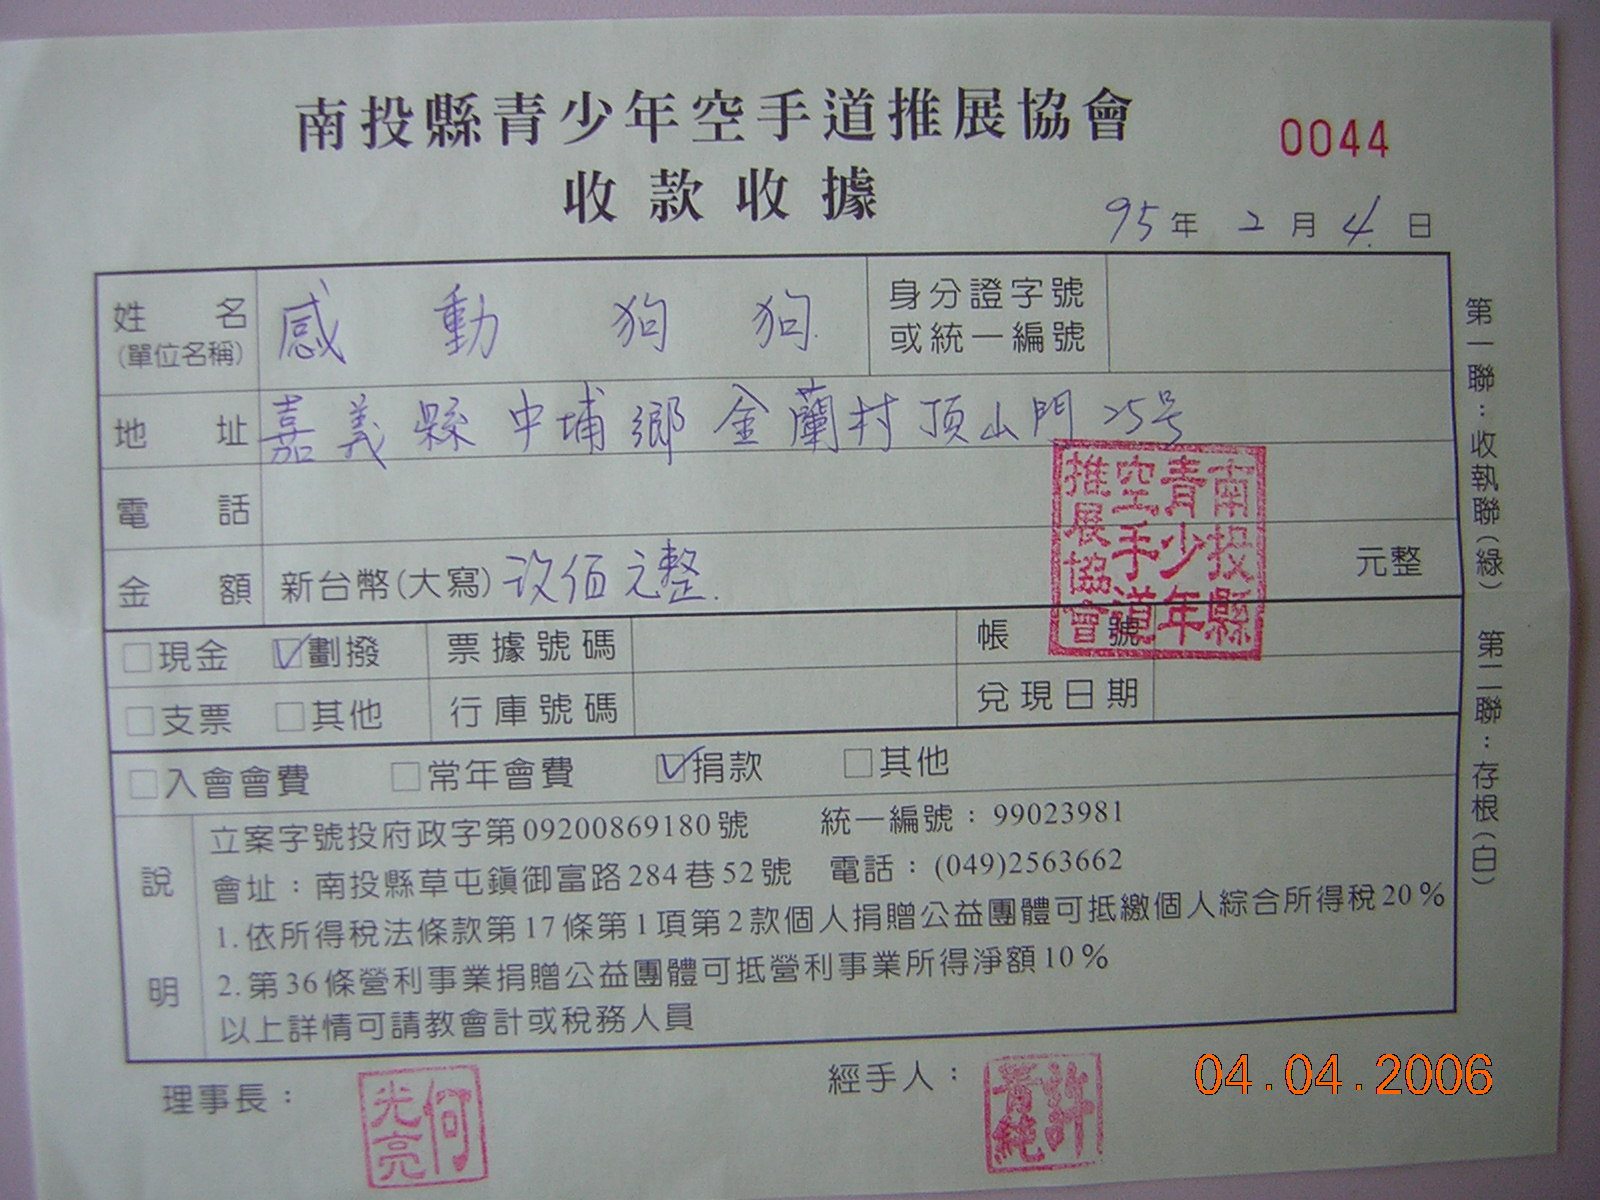 南投縣青少年空手道推展協會
0044
收款收據
95年2月4日
姓名
(單位名稱)
感動狗狗
身分證字號
或統一編號
地址 嘉義縣中埔鄉金蘭村頂山門25号
電話
金額 新台幣(大寫)玖佰元整 元整
南投縣青少年空手道推展協會
□現金 ☑劃撥 票據號碼 帳號
□支票 □其他 行庫號碼 兌現日期
□入會會費 □常年會費 ☑捐款 □其他
說明
立案字號投府政字第09200869180號 統一編號：99023981
會址：南投縣草屯鎮御富路284巷52號 電話：(049)2563662
1.依所得稅法條款第17條第1項第2款個人捐贈公益團體可抵繳個人綜合所得稅20%
2.第36條營利事業捐贈公益團體可抵營利事業所得淨額10%
以上詳情可請教會計或稅務人員
第一聯：收執聯(綠)
第二聯：存根(白)
理事長：
何光亮
經手人：
許
純
04.04.2006